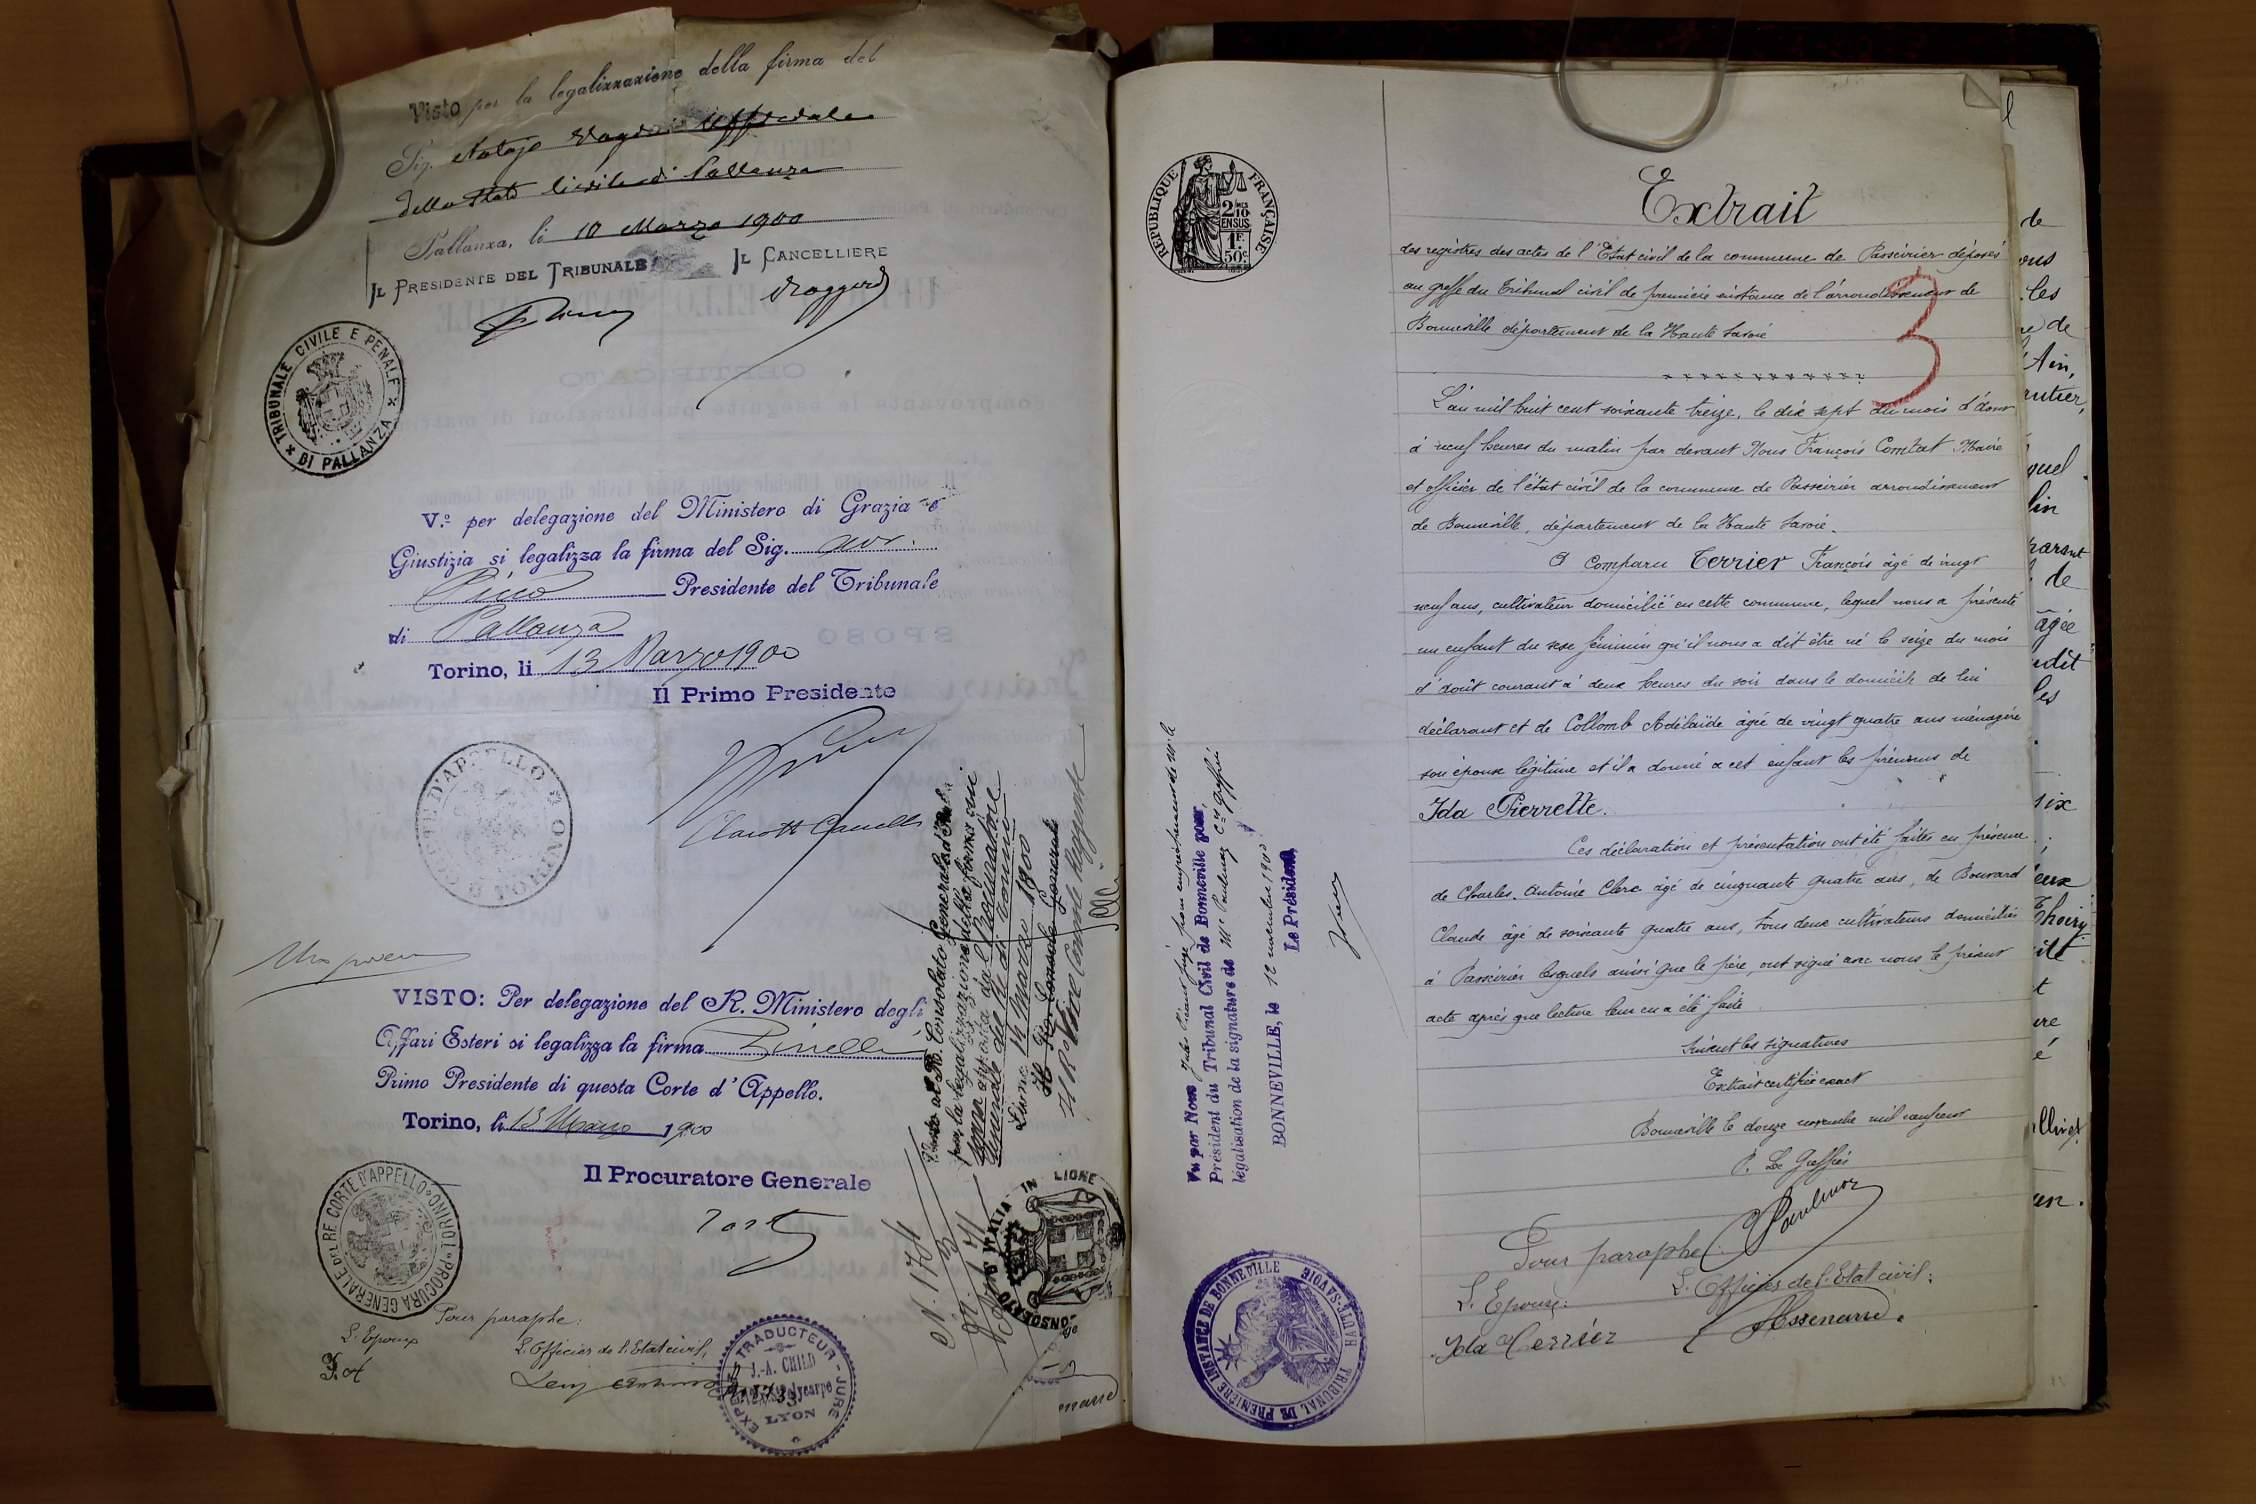 Visto per la legalizzazione della firma del
Sig.
dello Stato Civile di Pallanza
Pallanza, li 10 Marzo 1900
IL PRESIDENTE DEL TRIBUNALE IL CANCELLIERE
TRIBUNALE CIVILE E PENALE
DI PALLANZA
V.º per delegazione del Ministero di Grazia e
Giustizia si legalizza la firma del Sig. avv.
Presidente del Tribunale
di Pallanza
Torino, li 13 Marzo 1900
Il Primo Presidente
CORTE D'APPELLO TORINO
VISTO: Per delegazione del R. Ministero degli
Affari Esteri si legalizza la firma Pinelli
Primo Presidente di questa Corte d'Appello.
Torino, li 13 Marzo 1900
Il Procuratore Generale
PROCURA GENERALE DEL RE CORTE D'APPELLO TORINO
Pour paraphe:
L'Epoux
L'Officier de l'Etat civil,
EXPERT TRADUCTEUR-JURÉ
J.-A. CHILD
LYON
Visto al R. Consolato Generale d'Italia
per la legalizzazione della firma
Generale del Re di Torino
Lione 14 Marzo 1900
Il R. Console Generale
Il R. Vice Console Reggente
N. 174
CONSOLATO D'ITALIA IN LIONE
RÉPUBLIQUE FRANÇAISE
2/10 EN SUS
1F. 50c.
Vu par Nous
Président du Tribunal Civil de Bonneville pour
légalisation de la signature de Me Paulmaz
BONNEVILLE, le 12 novembre 1900
Le Président,
TRIBUNAL DE PREMIÈRE INSTANCE DE BONNEVILLE
HAUTE-SAVOIE
Extrait
3
des registres des actes de l'Etat civil de la commune de Passeirier déposés
au greffe du Tribunal civil de première instance de l'arrondissement de
Bonneville département de la Haute Savoie
L'an mil huit cent soixante treize, le dix sept du mois d'aout
à neuf heures du matin par devant Nous François Contat Maire
et officier de l'état civil de la commune de Passeirier arrondissement
de Bonneville, département de la Haute Savoie.
A comparu Terrier François âgé de vingt
neuf ans, cultivateur domicilié en cette commune, lequel nous a présenté
un enfant du sexe féminin qu'il nous a dit être né le seize du mois
d'août courant à deux heures du soir dans le domicile de lui
déclarant et de Collomb Adélaïde âgée de vingt quatre ans ménagère
son épouse légitime et il a donné a cet enfant les prénoms de
Ida Pierrette.
Ces déclaration et présentation ont été faites en présence
de Charles Antoine Clerc âgé de cinquante quatre ans, de Bouvard
Claude âgé de soixante quatre ans, tous deux cultivateurs domiciliés
à Passeirier lesquels ainsi que le père, ont signé avec nous le présent
acte après que lecture leur en a été faite
Suivent les signatures
Extrait certifié exact
Bonneville le douze novembre mil neuf cent
P. Le Greffier
Pour paraphe:
L'Epouse: L'Officier de l'Etat civil:
Ida Terrier